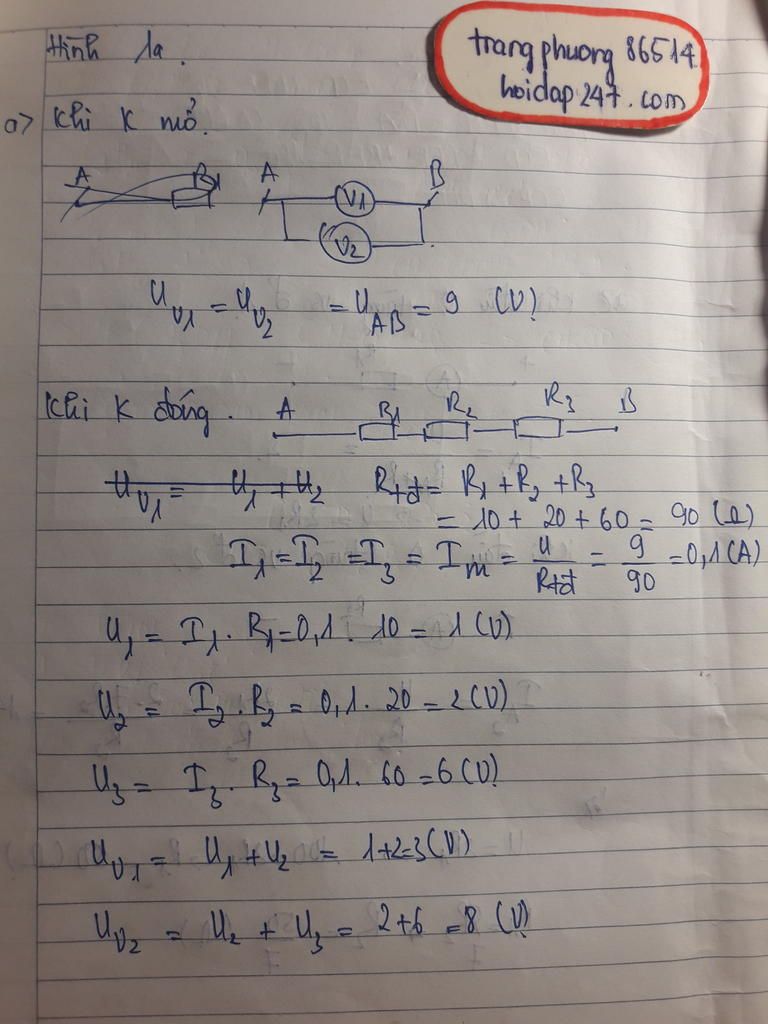 Hình 1a.
trangphuong86514.
hoidap247.com
a> Khi K mở.
A R1 A V1 B
V2
U_V1 = U_V2 = U_AB = 9 (V)
Khi K đóng. A R1 R2 R3 B
U_V1 = U1 + U2 Rtđ = R1 + R2 + R3
= 10 + 20 + 60 = 90 (Ω)
I1 = I2 = I3 = Im = U/Rtđ = 9/90 = 0,1 (A)
U1 = I1 . R1 = 0,1 . 10 = 1 (V)
U2 = I2 . R2 = 0,1 . 20 = 2 (V)
U3 = I3 . R3 = 0,1 . 60 = 6 (V)
U_V1 = U1 + U2 = 1+2=3 (V)
U_V2 = U2 + U3 = 2+6 = 8 (V)